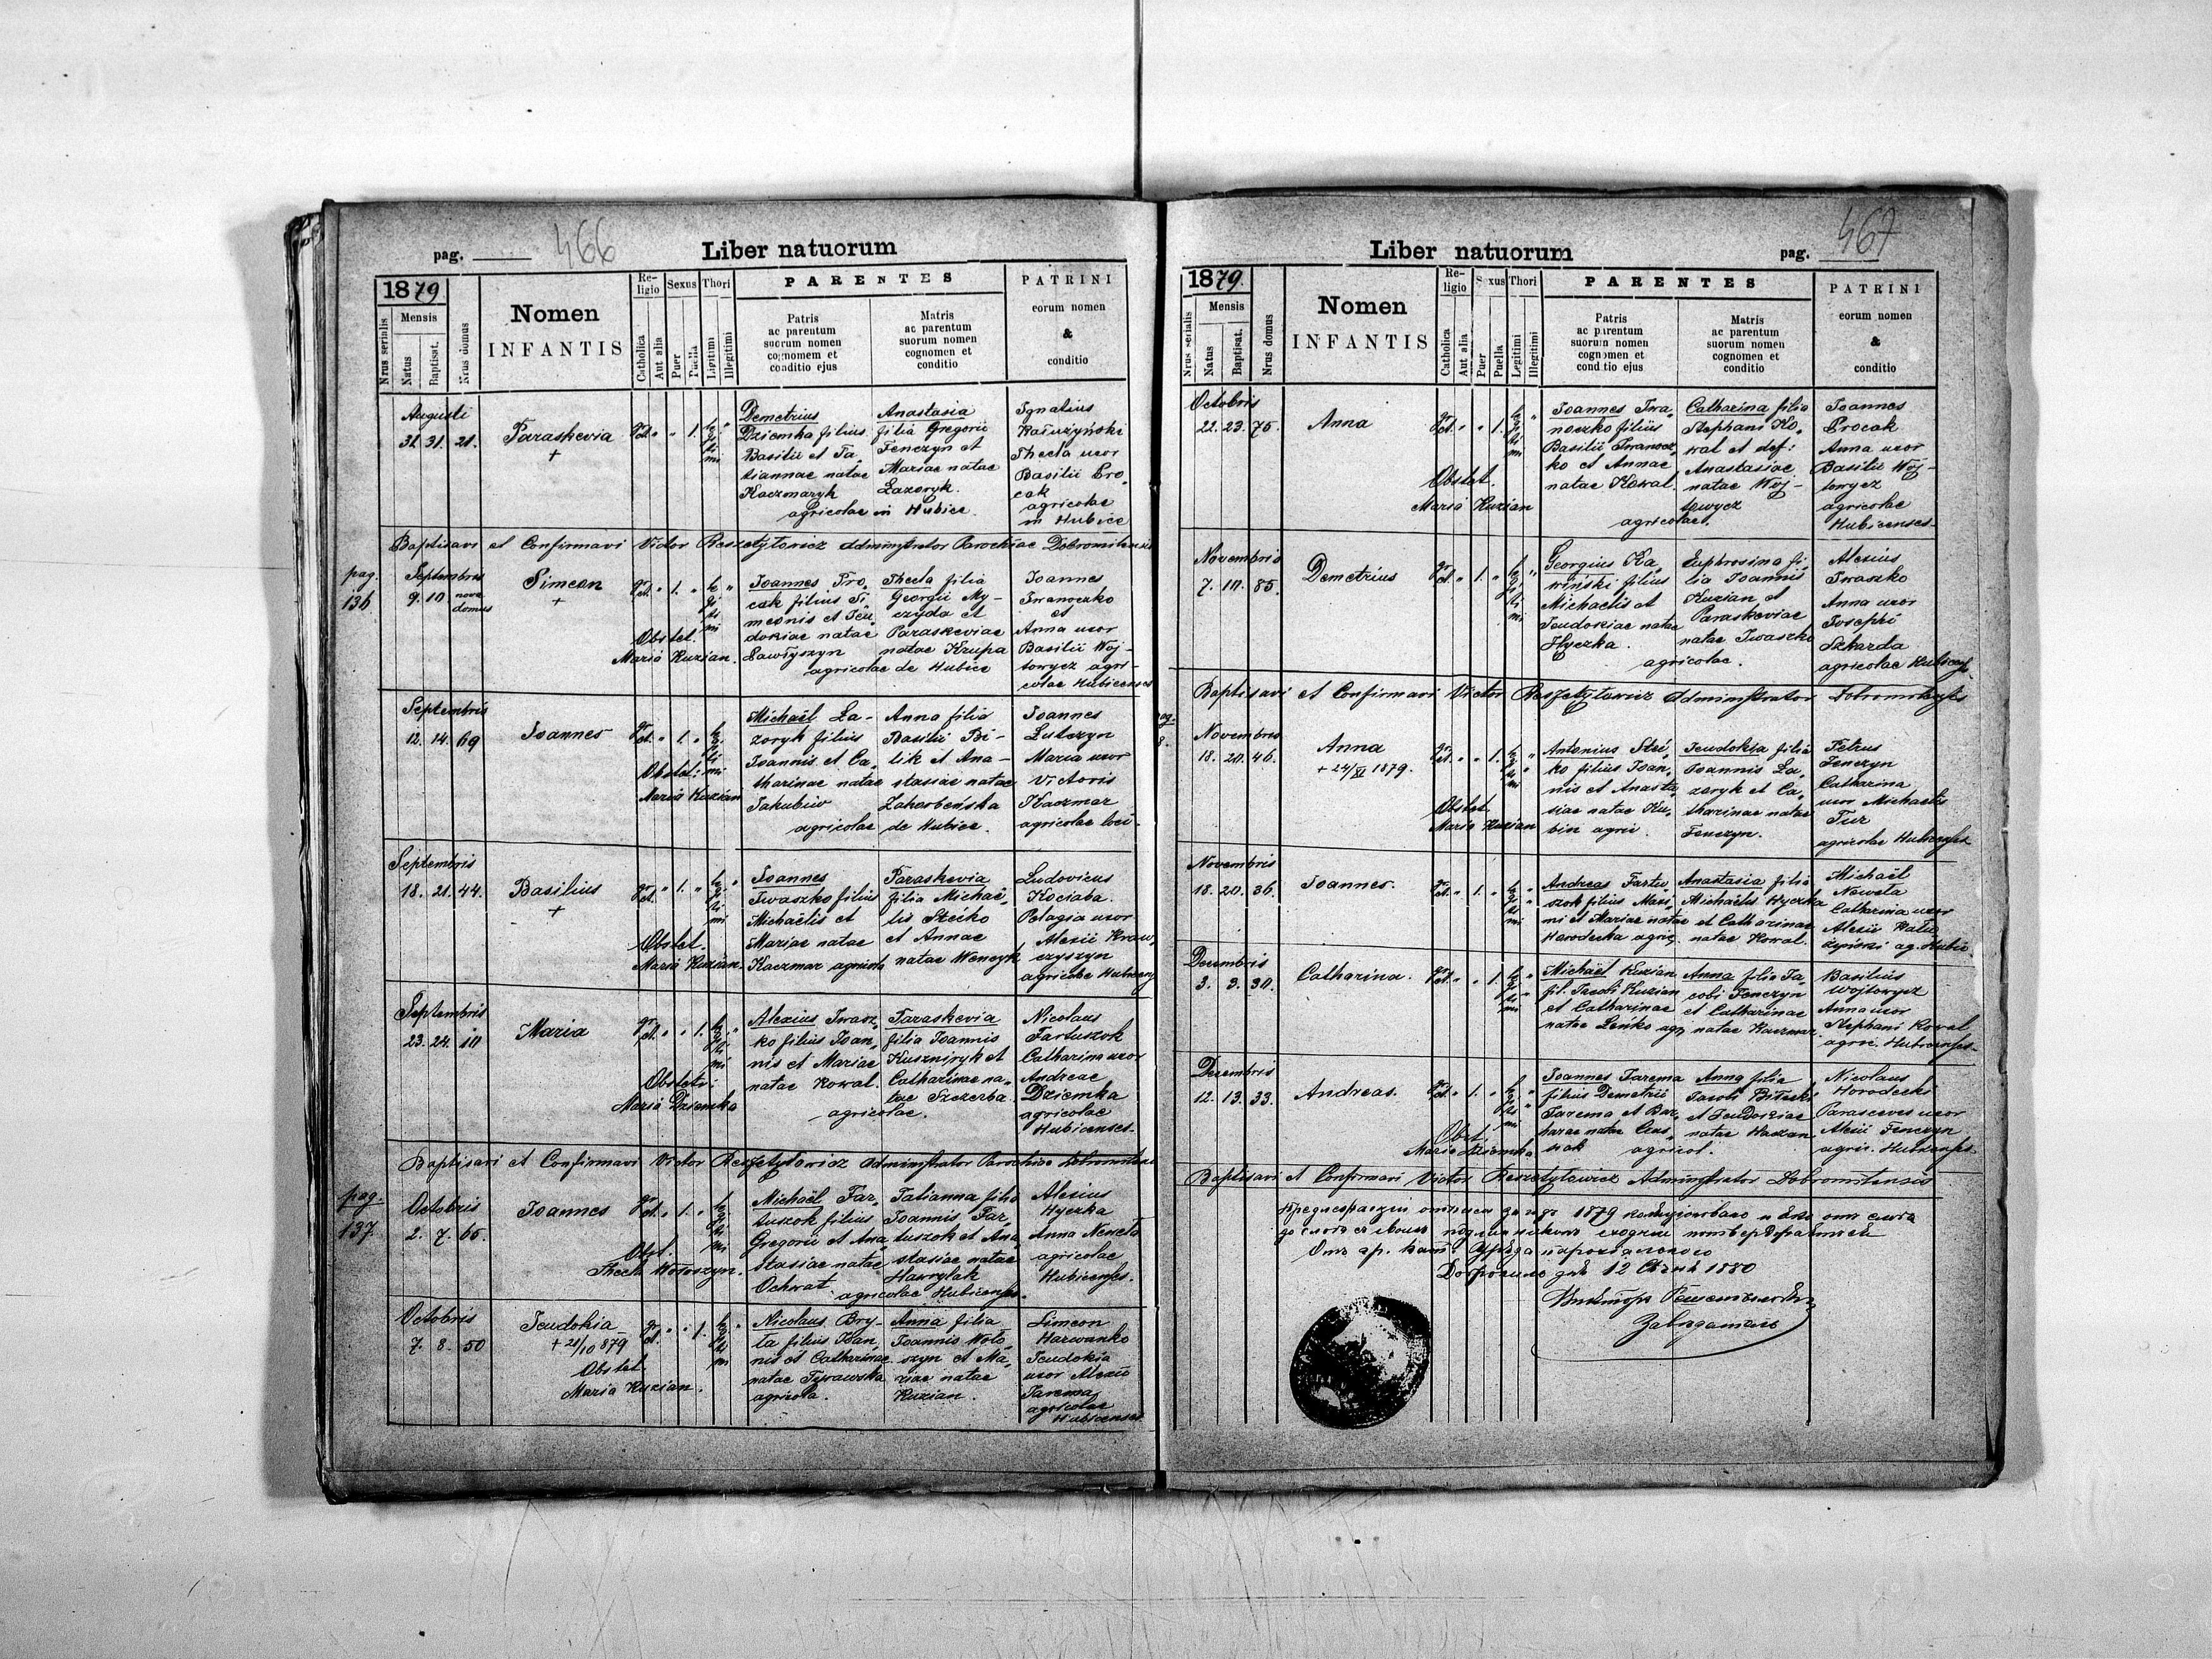 pag. 466
Liber natuorum
1879
Nrus serialis
Mensis
Natus
Baptisat.
Nrus domus
Nomen
INFANTIS
Religio
Catholica
Aut alia
Sexus
Puer
Puella
Thori
Ligitimi
Illegitimi
PARENTES
Patris
ac parentum
suorum nomen
cognomem et
conditio ejus
Matris
ac parentum
suorum nomen
cognomen et
conditio
PATRINI
eorum nomen
&
conditio
Augusti
31. 31. 21.
Paraskevia
+
gr. ct. " " 1. legitimi "
Demetrius
Dziemka filius
Basilii et Ta-
tiannae natae
Kaczmaryk
Anastasia
filia Gregorii
Fenczyn et
Mariae natae
Łazoryk.
agricolae in Hubice.
Ignatius
Kałużyński
Thecla uxor
Basilii Pro-
cak
agricolae
in Hubice
Baptisavi et Confirmavi Victor Reszetyłowicz Administrator Parochiae Dobromilensis
pag.
136
Septembris
9. 10 nova
domus
Simeon
+
gr. ct. " 1. " legitimi "
Obstet.
Maria Kuzian.
Joannes Pro-
cak filius Si-
meonis et Jeu-
dokiae natae
Pawłyszyn
Thecla filia
Georgii My-
czyda et
Paraskeviae
natae Krupa
agricolae de Hubice
Joannes
Iwanoczko
et
Anna uxor
Basilii Woj-
towycz agri-
colae Hubicenses
Septembris
12. 14. 69
Joannes
gr. ct. " 1. " legitimi
Obstet:
Maria Kuzian
Michaël La-
zoryk filius
Joannis et Ca-
tharinae natae
Jakubiw
Anna filia
Basilii Bi-
lik et Ana-
stasiae natae
Zaharbeńska
agricolae de Hubice.
Joannes
Lutczyn
Maria uxor
Victoris
Kaczmar
agricolae loci.
Septembris
18. 21. 44.
Basilius
+
gr. ct. " 1. " legitimi "
Obstet.
Maria Kuzian.
Joannes
Iwaszko filius
Michaëlis et
Mariae natae
Kaczmar agricola
Paraskevia
filia Michaë-
lis Stećko
et Annae
natae Wenczyk
Ludovicus
Kociaba.
Pelagia uxor
Alexii Kraw-
czyszyn
agricolae Hubicens
Septembris
23. 24. 10
Maria
gr. ct. " " 1. legitimi "
Obstetr:
Maria Dziemka
Alexius Iwasz-
ko filius Joan-
nis et Mariae
natae Kowal.
Paraskevia
filia Joannis
Kusznyryk et
Catharinae na-
tae Szczerba.
agricolae.
Nicolaus
Fartuszok
Catharina uxor
Andreae
Dziemka
agricolae
Hubicenses.
Baptisavi et Confirmavi Victor Reszetyłowicz Administrator Parochiae Dobromilens
pag.
137
Octobris
2. 7. 65.
Joannes
gr. ct. " 1. " legitimi
Obst.
Thecla Wołoszyn.
Michaël Far-
tuszok filius
Gregorii et Ana-
stasiae natae
Ochwat
Tatianna filia
Joannis Far-
tuszok et Ana-
stasiae natae
Hawrylak
agricolae Hubicenses.
Alexius
Hyczka
Anna Neweta
agricolae
Hubicenses.
Octobris
7. 8. 50
Jeudokia
+ 21/10 879
Obstet.
Maria Kuzian.
gr. ct. " " 1. legitimi "
Nicolaus Bry-
ta filius Joan-
nis et Catharinae
natae Tyrawska
agricola.
Anna filia
Joannis Woło-
szyn et Ma-
riae natae
Kuzian.
Simeon
Harwanko
Jeudokia
uxor Alexii
Jarema
agricolae
Hubicenses
Liber natuorum
pag. 467
1879.
Nrus serialis
Mensis
Natus
Baptisat.
Nrus domus
Nomen
INFANTIS
Religio
Catholica
Aut alia
Sexus
Puer
Puella
Thori
Legitimi
Illegitimi
PARENTES
Patris
ac parentum
suorum nomen
cognomen et
conditio ejus
Matris
ac parentum
suorum nomen
cognomen et
conditio
PATRINI
eorum nomen
&
conditio
Octobris
22. 23. 75.
Anna
gr. ct. " " 1. legitimi "
Obstet.
Maria Kuzian
Joannes Iwa-
noczko filius
Basilii Iwanocz-
ko et Annae
natae Kowal.
Catharina filia
Stephani Ko-
wal et def:
Anastasiae
natae Woj-
towycz
agricolae.
Joannes
Procak
Anna uxor
Basilii Woj-
towycz
agricolae
Hubicenses.
Novembris
7. 10. 85.
Demetrius
gr. ct. " 1. " legitimi "
Georgius Ka-
wiński filius
Michaelis et
Jeudokiae natae
Hyczka.
Euphrosina fi-
lia Joannis
Kuzian et
Paraskeviae
natae Iwaszko
agricolae.
Alexius
Iwaszko
Anna uxor
Josephi
Szkarda
agricolae Hubicens.
Baptisavi et Confirmavi Victor Reszetyłowicz Administrator Dobromilensis
Novembris
18. 20. 46.
Anna
+ 24/XI 1879.
gr. ct. " " 1. legitimi "
Obstet.
Maria Kuzian
Antonius Steć-
ko filius Joan-
nis et Anasta-
siae natae Ku-
bin agric.
Jeudokia filia
Joannis La-
zoryk et Ca-
tharinae natae
Fenczyn.
Petrus
Fenczyn
Catharina
uxor Michaelis
Tur
agricolae Hubicenses
Novembris
18. 20. 36.
Joannes.
gr. ct. " 1. " legitimi "
Andreas Fartu-
szok filius Maxi-
mi et Mariae natae
Horodecka agric.
Anastasia filia
Michaëlis Hyczka
et Catharinae
natae Kowal.
Michaël
Neweta
Catharina uxor
Alexii Kału-
żyński ag. Hubic
Decembris
3. 3. 30.
Catharina.
gr. ct. " " 1. legitimi "
Michaël Kuzian
fil. Jacobi Kuzian
et Catharinae
natae Leńko agr.
Anna filia Ja-
cobi Fenczyn
et Catharinae
natae Kaczmar
Basilius
Wojtowycz
Anna uxor
Stephani Kowal
agric. Hubicenses.
Decembris
12. 13. 33.
Andreas.
gr. ct. " 1. " legitimi "
Obst.
Maria Dziemka
Joannes Jarema
filius Demetrii
Jarema et Bar-
barae natae
Anna filia
Jacobi
et Jeudokiae
natae
agricol.
Nicolaus
Horodecki
Parasceves uxor
Alexii Fenczyn
agric. Hubicenses.
Baptisavi et Confirmavi Victor Reszetyłowicz Administrator Dobromilensis
1879
12 1880